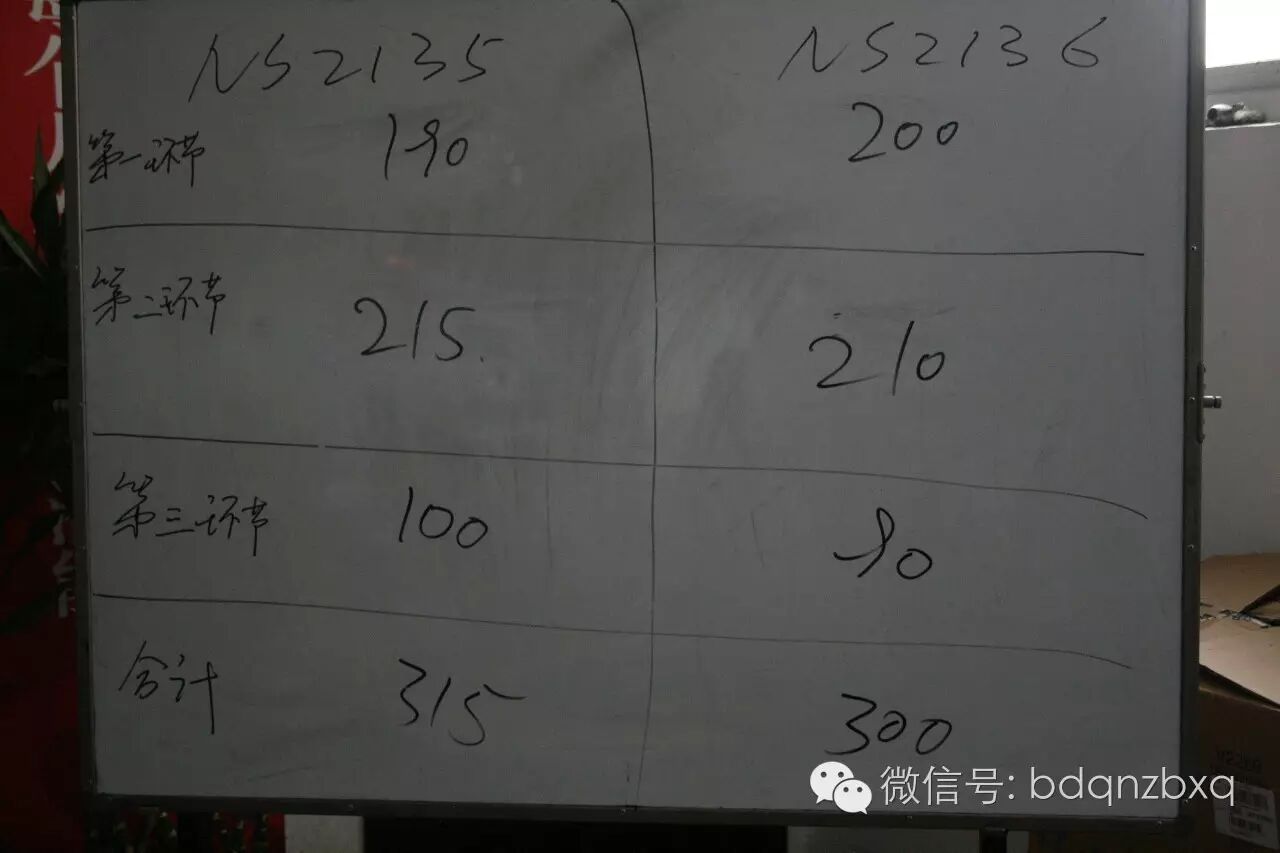 NS2135 NS2136
第一环节 190 200
第二环节 215. 210
第三环节 100 90
合计 315 300
微信号: bdqnzbxq